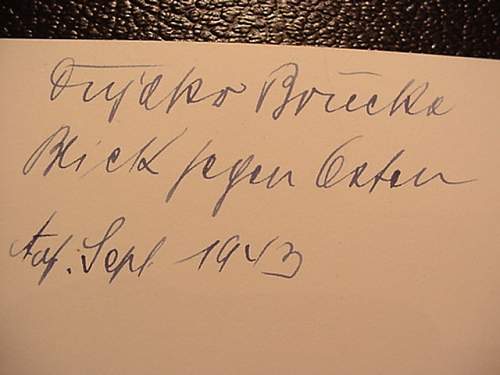 Brücke
Blick gegen Osten
Auf. Sept 1943